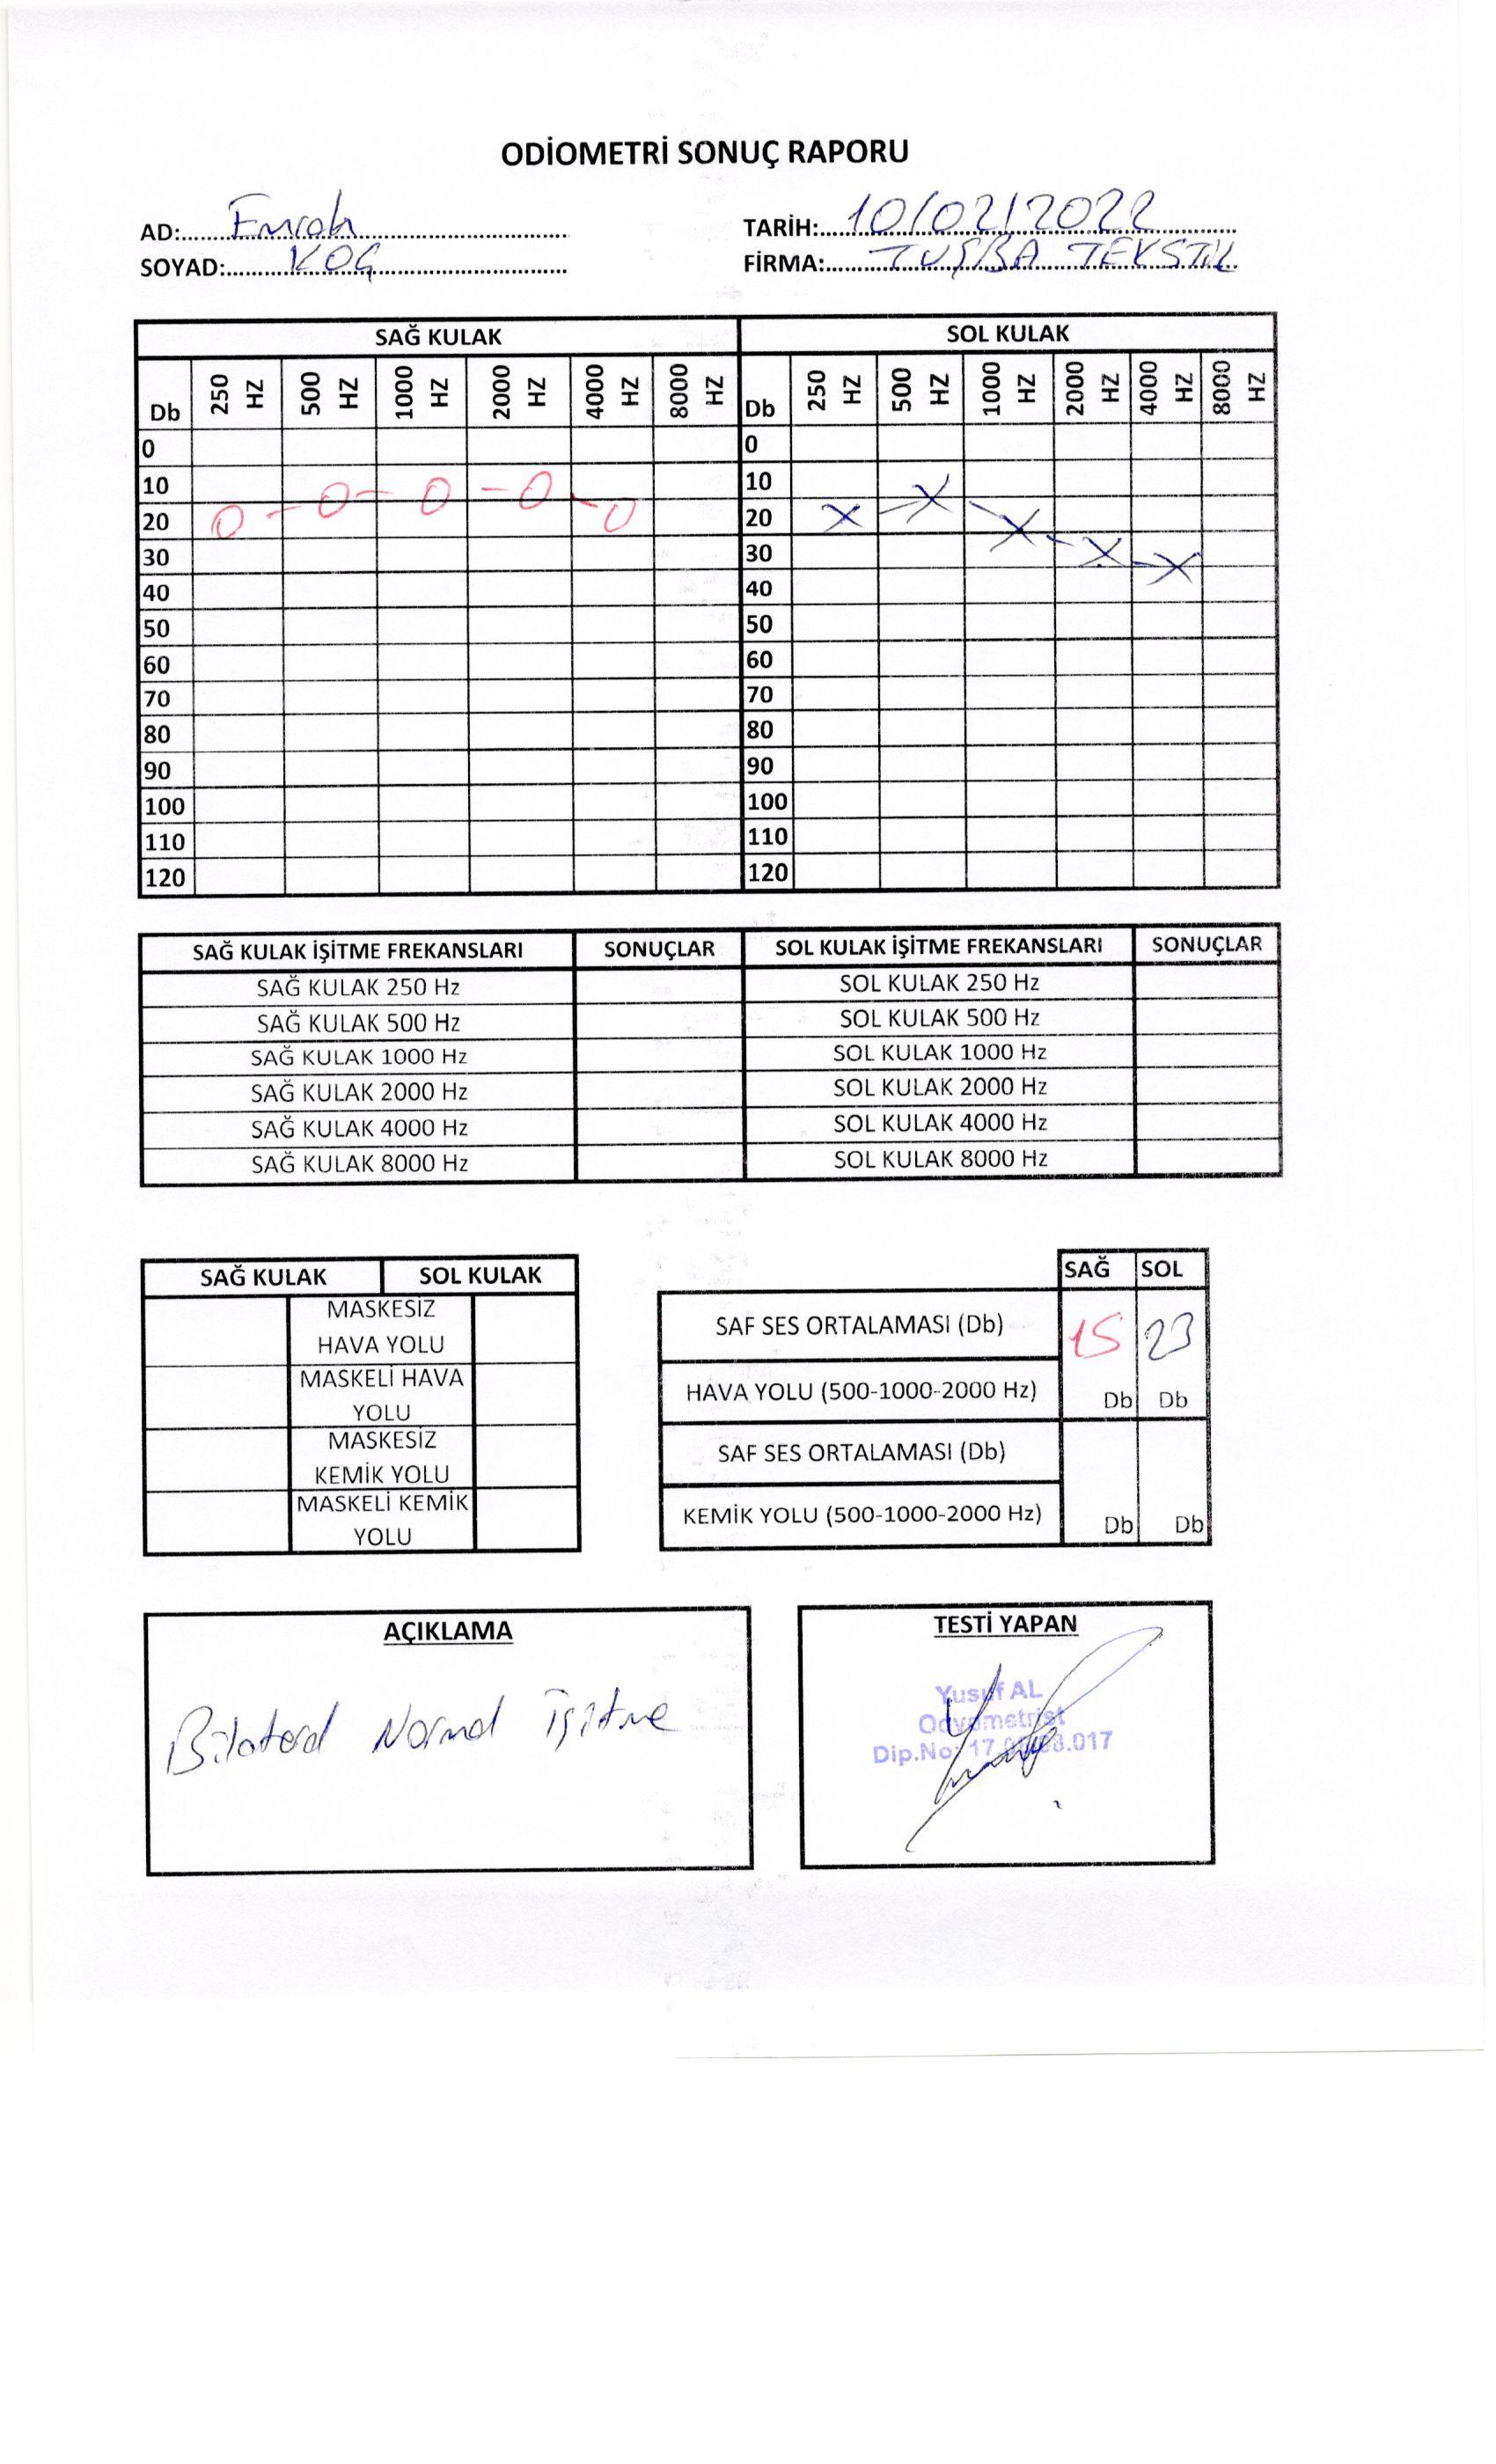 ODİOMETRİ SONUÇ RAPORU
AD: Emrah
TARİH: 10/02/2022
SOYAD: KOÇ
FİRMA: TUŞBA TEKSTİL
SAĞ KULAK SOL KULAK
Db 250 HZ 500 HZ 1000 HZ 2000 HZ 4000 HZ 8000 HZ Db 250 HZ 500 HZ 1000 HZ 2000 HZ 4000 HZ 8000 HZ
0 0
10 10
20 20
30 30
40 40
50 50
60 60
70 70
80 80
90 90
100 100
110 110
120 120
SAĞ KULAK İŞİTME FREKANSLARI SONUÇLAR SOL KULAK İŞİTME FREKANSLARI SONUÇLAR
SAĞ KULAK 250 Hz SOL KULAK 250 Hz
SAĞ KULAK 500 Hz SOL KULAK 500 Hz
SAĞ KULAK 1000 Hz SOL KULAK 1000 Hz
SAĞ KULAK 2000 Hz SOL KULAK 2000 Hz
SAĞ KULAK 4000 Hz SOL KULAK 4000 Hz
SAĞ KULAK 8000 Hz SOL KULAK 8000 Hz
SAĞ KULAK SOL KULAK
MASKESİZ
HAVA YOLU
MASKELİ HAVA
YOLU
MASKESİZ
KEMİK YOLU
MASKELİ KEMİK
YOLU
SAĞ SOL
SAF SES ORTALAMASI (Db) 15 23
HAVA YOLU (500-1000-2000 Hz) Db Db
SAF SES ORTALAMASI (Db)
KEMİK YOLU (500-1000-2000 Hz) Db Db
AÇIKLAMA
Bilateral Normal İşitme
TESTİ YAPAN
Yusuf AL
Odyometrist
Dip.No: 17